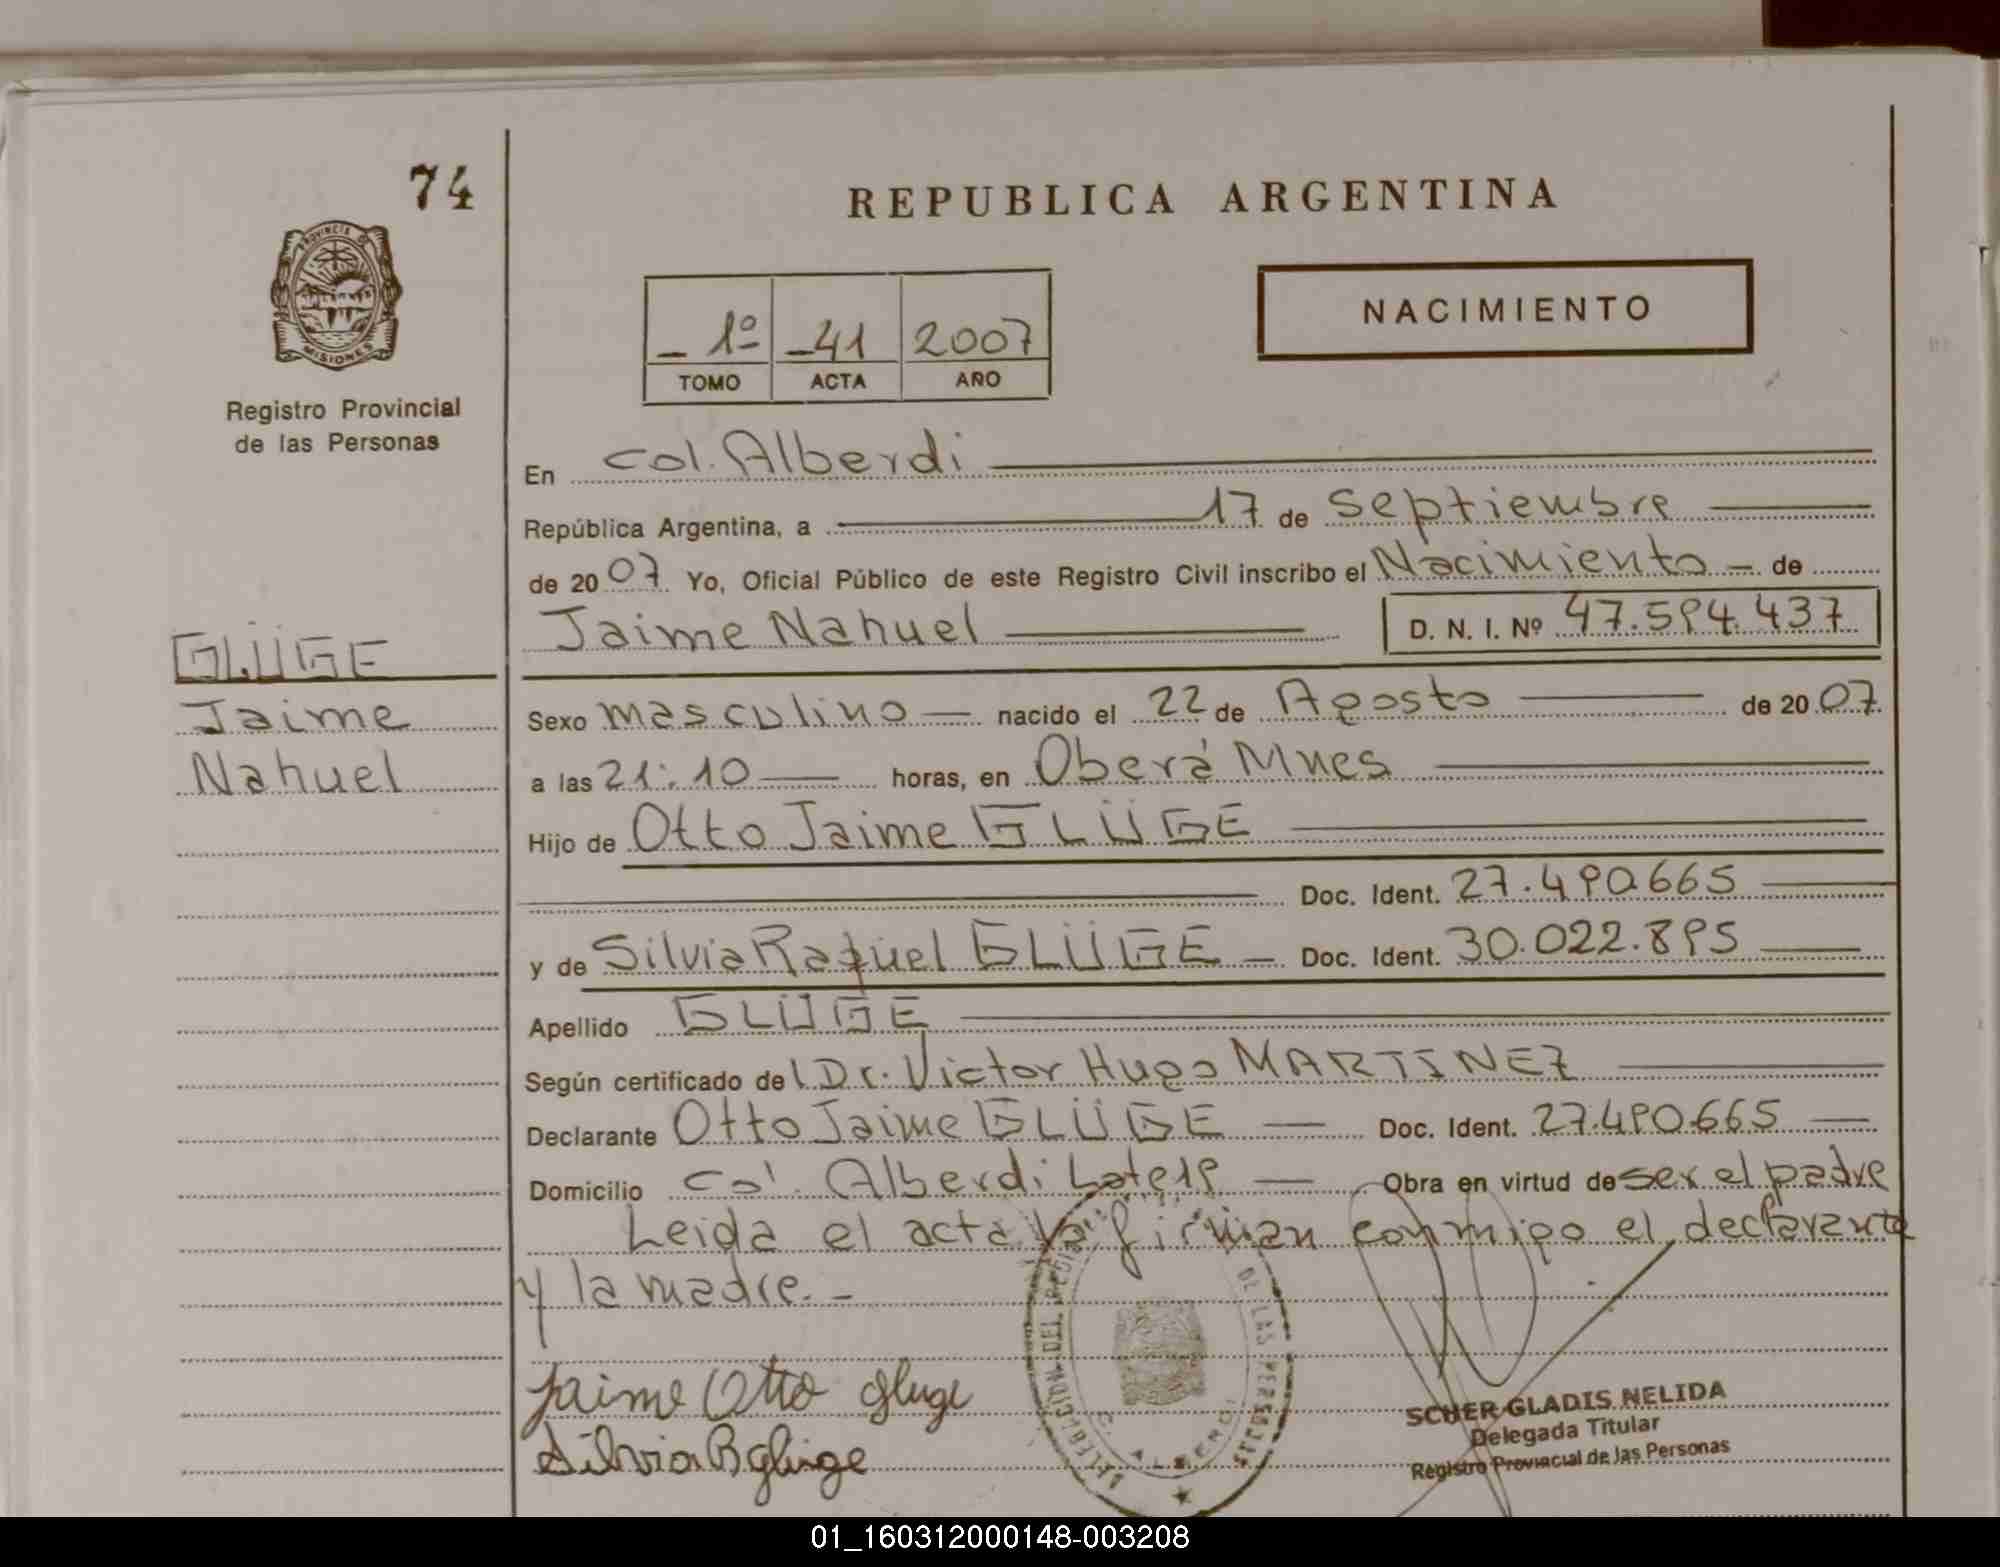 74
REPUBLICA ARGENTINA
PROVINCIA DE
MISIONES
Registro Provincial
de las Personas
1º 41 2007
TOMO ACTA AÑO
NACIMIENTO
En Col. Alberdi
República Argentina, a 17 de septiembre
de 2007 Yo, Oficial Público de este Registro Civil inscribo el Nacimiento de
Jaime Nahuel D. N. I. Nº 47.594.437
GLÜGE
Jaime
Nahuel
Sexo masculino nacido el 22 de Agosto de 2007
a las 21:10 horas, en Oberá Mnes
Hijo de Otto Jaime GLÜGE
Doc. Ident. 27.490.665
y de Silvia Raquel GLÜGE Doc. Ident. 30.022.895
Apellido GLÜGE
Según certificado del Dr. Victor Hugo MARTINEZ
Declarante Otto Jaime GLÜGE Doc. Ident. 27.490.665
Domicilio Col. Alberdi Obra en virtud de ser el padre
Leida el acta la firman conmigo el declarante
y la madre.-
Jaime Otto Gluge
Silvia R Glüge
DELEGACION DEL REGISTRO DE LAS PERSONAS
C. ALBERDI
SCHER GLADIS NELIDA
Delegada Titular
Registro Provincial de las Personas
01_160312000148-003208